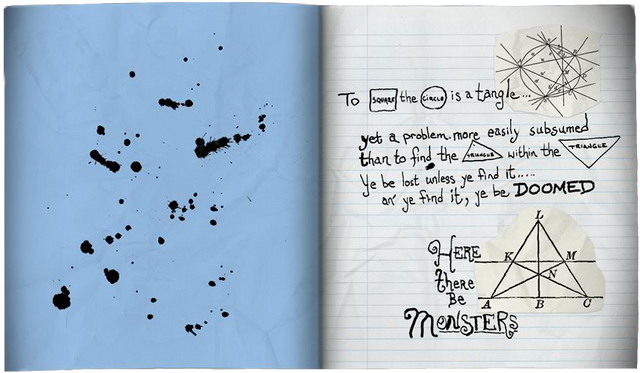 To SQUARE the CIRCLE is a tangle...
yet a problem more easily subsumed
than to find the TRIANGLE within the TRIANGLE
Ye be lost unless ye find it.....
an' ye find it, ye be DOOMED
HERE
there
Be
MONSTERS
L
K M
N
A B C